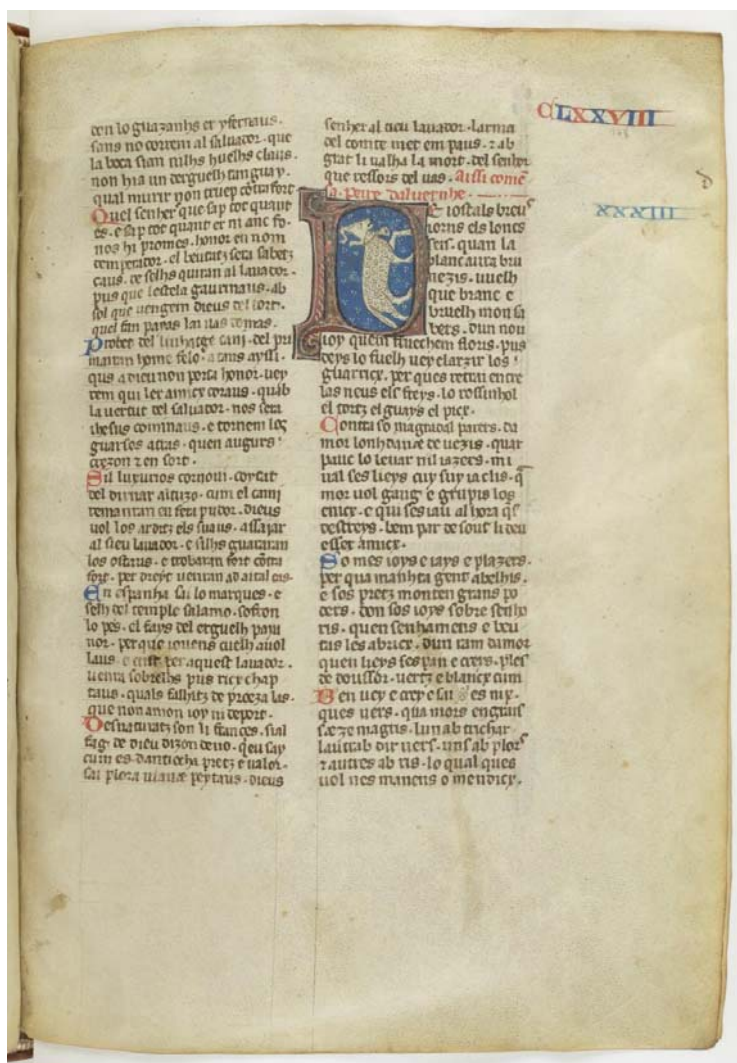 con lo guazanhs et yfernaus.
sans no correm al saluador. que
la boca stan nilhs huelhs claus.
non hia un derguelh tan gua y.
qual murir non truep cõtrafort
Quel senher que sap tot quant
es. e sap tot quant er ni anc fo.
nos hi promes. honor en nom
demperador. el beutatz sera sabetz
caus. de selhs quiran al lauador.
pus que lestela gaurinaus. ab
sol que uengem dieus del tort.
quel fan paias lai uas domas.
Probet del linhatge cani. del pri
mairan home felo. a tans ayssi.
qus a dieu non porta honor. uey
rem qui ler amicx coraus. quab
la uertut del saluador. nos sera
ihesus cominaus. e tornem los
guarsos atras. quen augurs
crezon z en sort.
Sil luxurios cornoui. coytat
del dinar
reman tan en feti pudor. dieus
uol los arditz els suaus. assaiar
al sieu lauador. e silhs guaitaran
los ostaus. e trobaran fort cõtra
fort. per dreyt uenran ad aital
En espanha sai lo marques. e
selh del temple salamo. sofron
lo pes. el fays del erguelh payn
nor. per que iouens cuelh auol
laus. e crist per aquest lauador.
uenra sobrelhs pus ricx chap
taus. quals falhitz de proeza las.
que non amon ioy ni deport.
Desnaturatz son li frances. sial
fag. de dieu dizon de no. qeu say
cum es. dantiocha pretz e ualor.
sai plora uianæ peytaus. dieus
senher al tieu lauador. larma
del comte met em paus. z ab
grat li ualha la mort. del senhor
que ressors del uas. Aissi comẽ
sa. Peire daluernhe.
Deiostals breus
iorns els loncs
sers. quan la
blanc aura bru
nezis. uuelh
que branc e
bruelh mon sa
bers. dun nou
ioy quem fruechem floris. pus
deys lo fuelh uey clarzir los
guarricx. per ques retrai entre
las neus els freys. lo rossinhol
el tortz el guays el picx.
Contra so magradal parers. da
mor lonhdanæ de uezis. quar
pauc lo leuar nil iazers. mi
ual ses lieys cuy suy iaclis. q̃
mor uol gaug e grupis los
enicx. e qui sesiau al hora q̃s
destreys. bem par de sout li deu
esser amicx.
So mes ioys e iays e plazers.
per qua manhta gent abelhis.
e sos pretz monten grans po
ders. don sos ioys sobre senho
ris. quen senhamens e beu
tas les abricx. dun ram damor
quen lieys ses pan e creys. ples
de doussor. uertz e blancx cum
Ben uey e crey e sai es nix.
ques uers. qua mors engrais
se ze magris. lun ab trichar
lautrab dir uers. uns ab plors
z autres ab ris. lo qual ques
uol nes manens o mendicx.
CLXXVIII
XXXIII